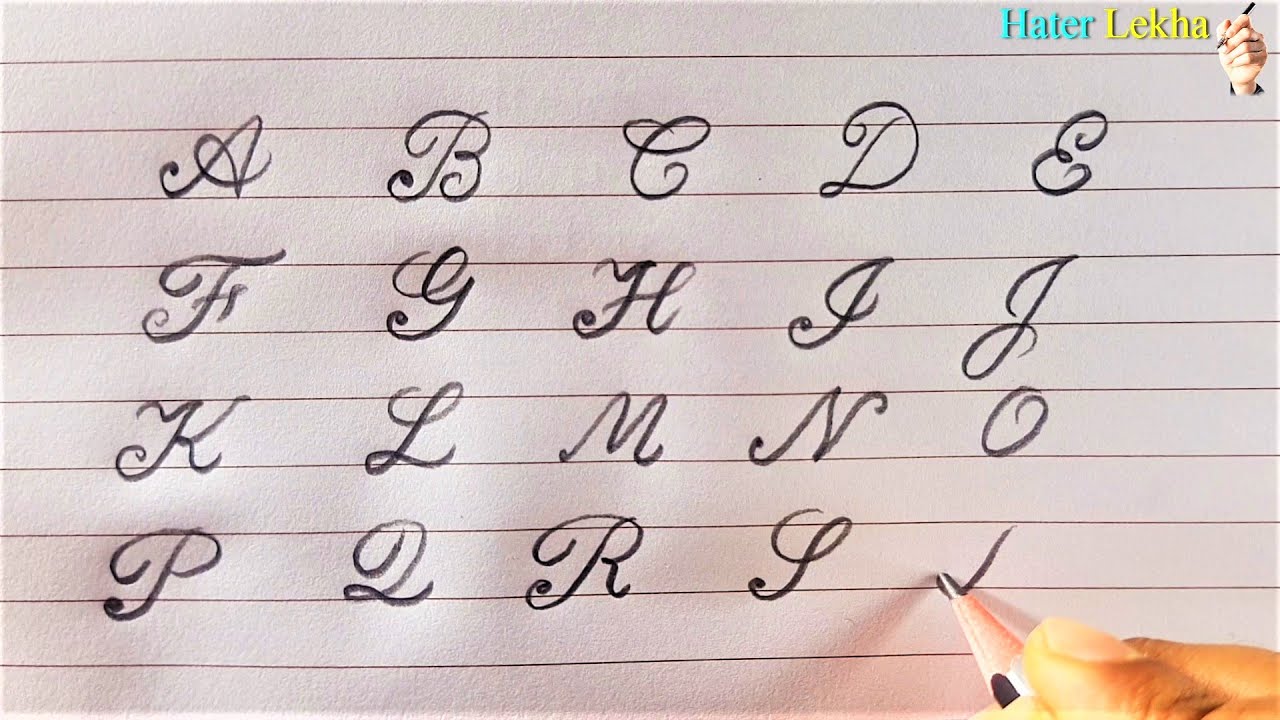 Hater Lekha
A B C D E
F G H I J
K L M N O
P Q R S